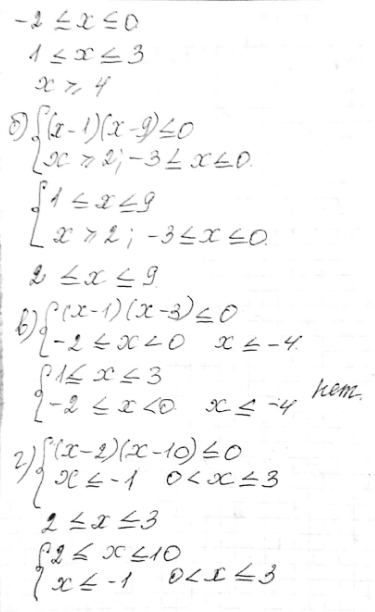 -2 ≤ x ≤ 0
1 ≤ x ≤ 3
x ≥ 4
б) { (x-1)(x-9) ≤ 0
x ≥ 2; -3 ≤ x ≤ 0.
{ 1 ≤ x ≤ 9
x ≥ 2; -3 ≤ x ≤ 0
2 ≤ x ≤ 9
в) { (x-1)(x-3) ≤ 0
-2 ≤ x < 0 x ≤ -4.
{ 1 ≤ x ≤ 3
-2 ≤ x < 0 x ≤ -4 нет.
г) { (x-2)(x-10) ≤ 0
x ≤ -1 0 < x ≤ 3
2 ≤ x ≤ 3
{ 2 ≤ x ≤ 10
x ≤ -1 0 < x ≤ 3